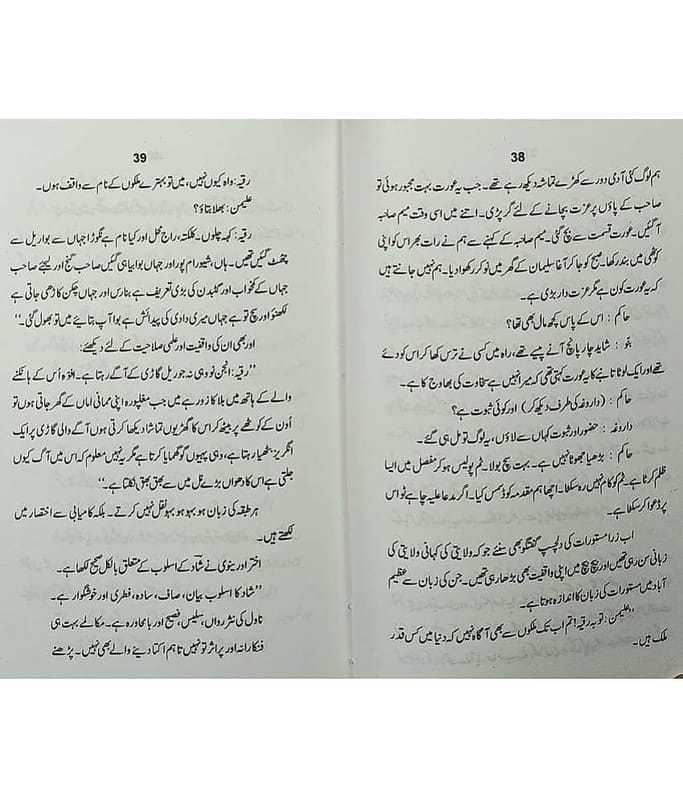 38
ہم لوگ کئی آدمی دور سے کھڑے تماشہ دیکھ رہے تھے۔ جب یہ عورت بہت مجبور ہوئی تو
صاحب کے پاؤں پر عزت بچانے کے لئے گر پڑی۔ اتنے میں اسی وقت میم صاحبہ
آ گئیں۔ عورت قسمت سے بچ گئی۔ میم صاحبہ کے کہنے سے ہم نے رات بھر اس کو اپنی
کوٹھی میں بند رکھا۔ صبح کو جا کر آغا سلیمان کے گھر میں نوکر رکھوا دیا۔ ہم نہیں جانتے ہیں
کہ یہ عورت کون ہے مگر عزت دار بڑی ہے۔
حاکم : اس کے پاس کچھ مال بھی تھا؟
بنو : شاید چار پانچ آنے پیسے تھے، راہ میں کسی نے ترس کھا کر اس کو دئے
تھے اور ایک لوٹا تانبے کا یہ عورت کہتی تھی کہ میرا نہیں ہے سخاوت کی بھاوج کا ہے۔
حاکم : (داروغہ کی طرف دیکھ کر) اور کوئی ثبوت ہے؟
داروغہ : حضور اور ثبوت کہاں سے لاؤں، یہ لوگ تو مل ہی گئے۔
حاکم : بڑھیا جھوٹا نہیں ہے۔ بہت سچ بولا۔ ٹم پولیس ہو کر مفصل میں ایسا
ظلم کرتا ہے۔ ٹم کو کام نہیں رہ سکتا۔ اچھا ہم مقدمہ کو ڈسمس کیا۔ اگر مدعا علیہ چاہے تو اس
پر دعوا کر سکتا ہے۔
اب زرا مستورات کی دلچسپ گفتگو بھی سنئے جو کہ ولایتی کی کہانی ولایتی کی
زبانی سن رہی تھیں اور بیچ بیچ میں اپنی واقفیت بھی بڑھا رہی تھیں۔ جن کی زبان سے عظیم
آباد میں مستورات کی زبان کا اندازہ ہوتا ہے۔
''علیمن: توبہ رقیہ! تم اب تک ملکوں سے بھی آگاہ نہیں کہ دنیا میں کس قدر
ملک ہیں۔
39
رقیہ: واہ کیوں نہیں، میں تو بہترے ملکوں کے نام سے واقف ہوں۔
علیمن: بھلا بتاؤ؟
رقیہ: کہہ چلوں۔ کلکتہ، راج محل اور کیا نام ہے نگوڑا جہاں سے بوا ریل سے
چھٹ گئیں تھیں۔ ہاں، شیو رام پور اور جہاں بوا بیاہی گئیں صاحب گنج اور لیجئے صاحب
جہاں کے کمخواب اور گلبدن کی بڑی تعریف ہے بنارس اور جہاں چکن کاڑھی جاتی ہے
لکھنؤ اور سچ تو ہے جہاں میری دادی کی پیدائش ہے بوا آپ بتائیے میں تو بھول گئی۔''
اور بھی ان کی واقفیت اور علمی صلاحیت کے لئے دیکھئے:
''رقیہ: انجن تو وہی نہ جو ریل گاڑی کے آگے رہتا ہے۔ افوہ اُس کے ہانکنے
والے کے ہاتھ میں بلا کا زور ہے میں جب مغلپورہ اپنی ممانی اماں کے گھر جاتی ہوں تو
اُون کے کوٹھے پر بیٹھ کر اس کا گھنٹوں تماشا دیکھا کرتی ہوں آگے والی گاڑی پر ایک
انگریز بٹھا رہتا ہے، وہی پہیوں کو گھمایا کرتا ہے مگر یہ نہیں معلوم کہ اس میں آگ کیوں
جلتی ہے اس کا دھواں بڑے نل میں سے بھق بھق نکلتا ہے۔''
ہر طبقہ کی زبان ہو بہو ہو بہو نقل نہیں کرتے۔ بلکہ کامیابی سے اختصار میں
لکھتے ہیں۔
اختر اورینوی نے شاد کے اسلوب کے متعلق بالکل صحیح لکھا ہے۔
''شاد کا اسلوب بیان، صاف، سادہ، فطری اور خوشگوار ہے۔
ناول کی نثر رواں، سلیس، فصیح اور بامحاورہ ہے۔ مکالمے بہت ہی
فنکارانہ اور پر اثر تو نہیں تاہم اکتا دینے والے بھی نہیں۔ پڑھنے